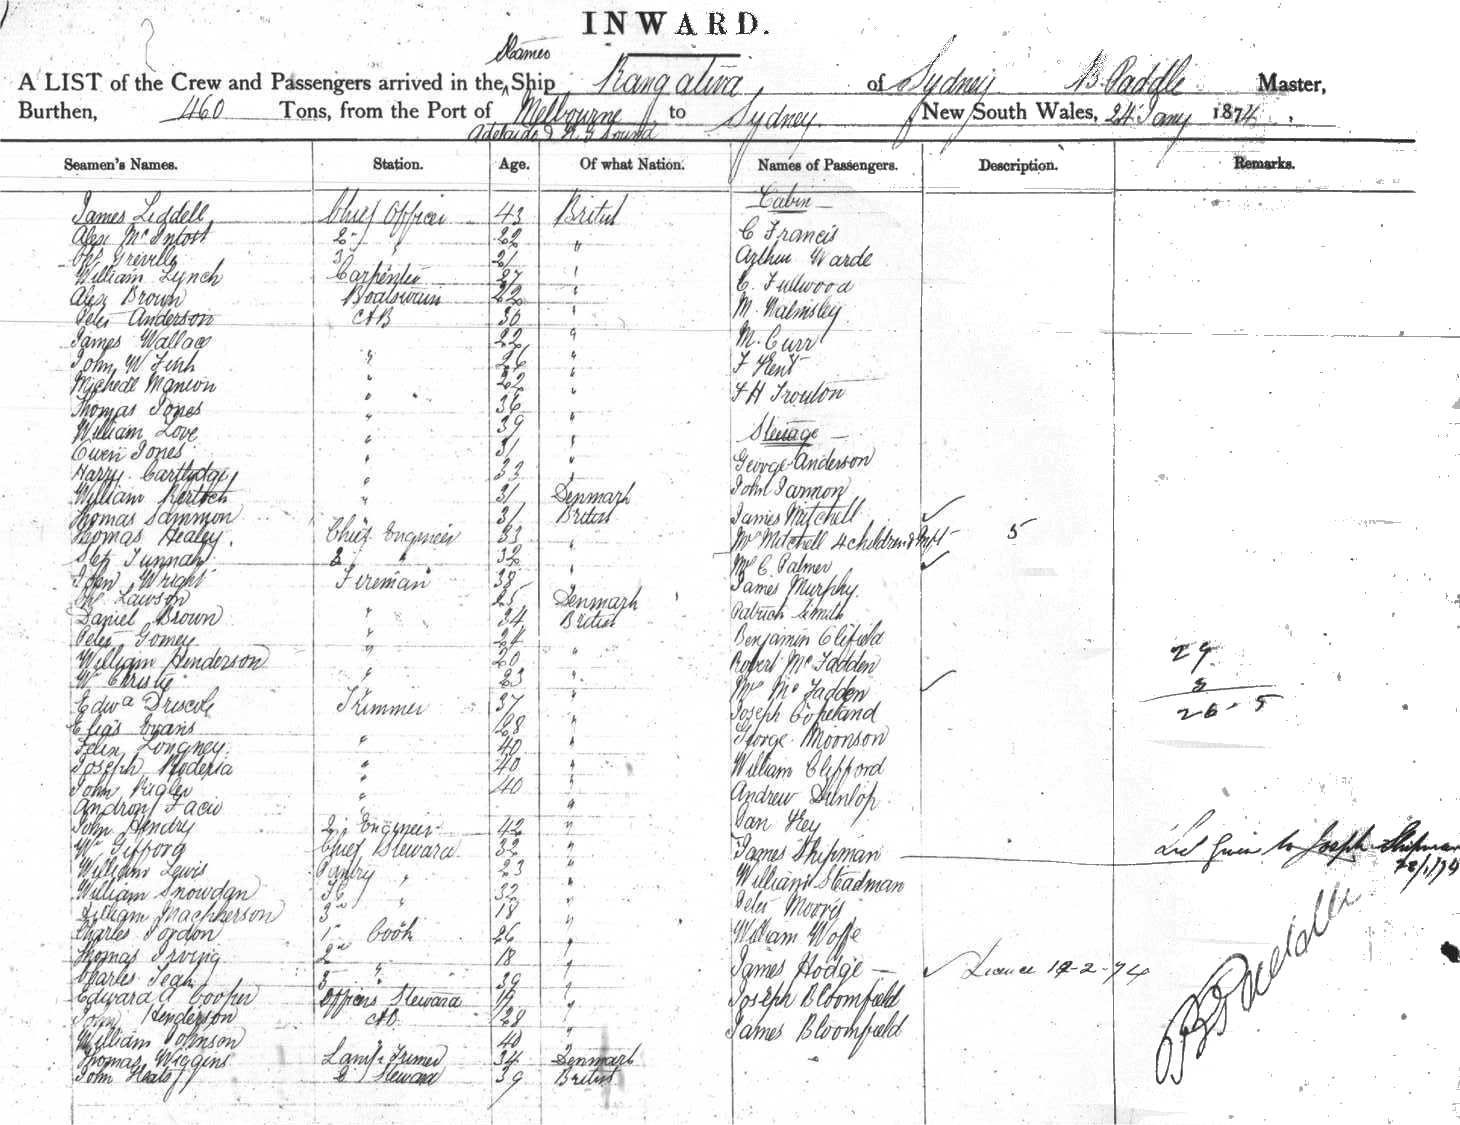 INWARD.
Steamer
A LIST of the Crew and Passengers arrived in the Ship Rangatira of Sydney B. Paddle Master,
Burthen, 460 Tons, from the Port of Melbourne to Sydney New South Wales, 24 Jany 1874.
Adelaide & K. G. Sound
Seamen's Names. Station. Age. Of what Nation. Names of Passengers. Description. Remarks.
Cabin
James Liddell Chief Officer 43 British
Alex McIntosh 2 " 22 " C Francis
Greville 3 " 21 Arthur Warde
William Lynch Carpenter 27 " C. Fullwood
Alex Brown Boatswain 22 " M. Walmsley
Peter Anderson AB 30 "
James Wallace 22 " M. Curr
John W " 26 " F Kent
Michael Manion " 22 " F H Trouton
Thomas Jones " 36 "
William Love " 39 " Steerage
Owen Jones " 31 " George Anderson
Harry Cartledge " 33 " John
William " 31 Denmark James Mitchell
Thomas Sammon 31 British Mrs Mitchell 4 children & Inft 5
Thomas Healey. Chief Engineer 33 " Mrs C. Palmer
Tunnah 3 " 32 " James Murphy
John Wright Fireman 38 " Patrick Smith
Lawson 25 Denmark
Daniel Brown " 34 British Benjamin
Peter Gomey " 24 Robert McFadden
William Henderson " 20 " Mrs McFadden
Wm Christie " 23 " Joseph Copeland
Edwd Driscole Trimmer 37 " George Moonson
Elias Evans 28 " William Clifford
Longney " 40 " Andrew Dunlop
Joseph Roderia " 40 " Key
John " 40 " James Shipman
" William Steadman
John Hendry 2 Engineer 42 " Peter Moores
Wm Gifford Chief Steward 32 " William Wolfe
William Lewis Pantry " 23 " James Hodge — Licence 12-2-74
William Snowdon " 32 " Joseph Bloomfield
William Macpherson 3rd " 18 " James Bloomfield
Charles Gordon 1st Cook 26 "
Thomas Irving 2nd " 18 "
Charles 3 " 39 "
Edward A Cooper Officers Steward 19 "
John Henderson AB 28
William Johnson 40 "
Thomas Wiggins Lamp Trimmer 34 Denmark
John Steward 39 British
29
3
26 - 5
Lic given to Joseph Shipman
B Paddle